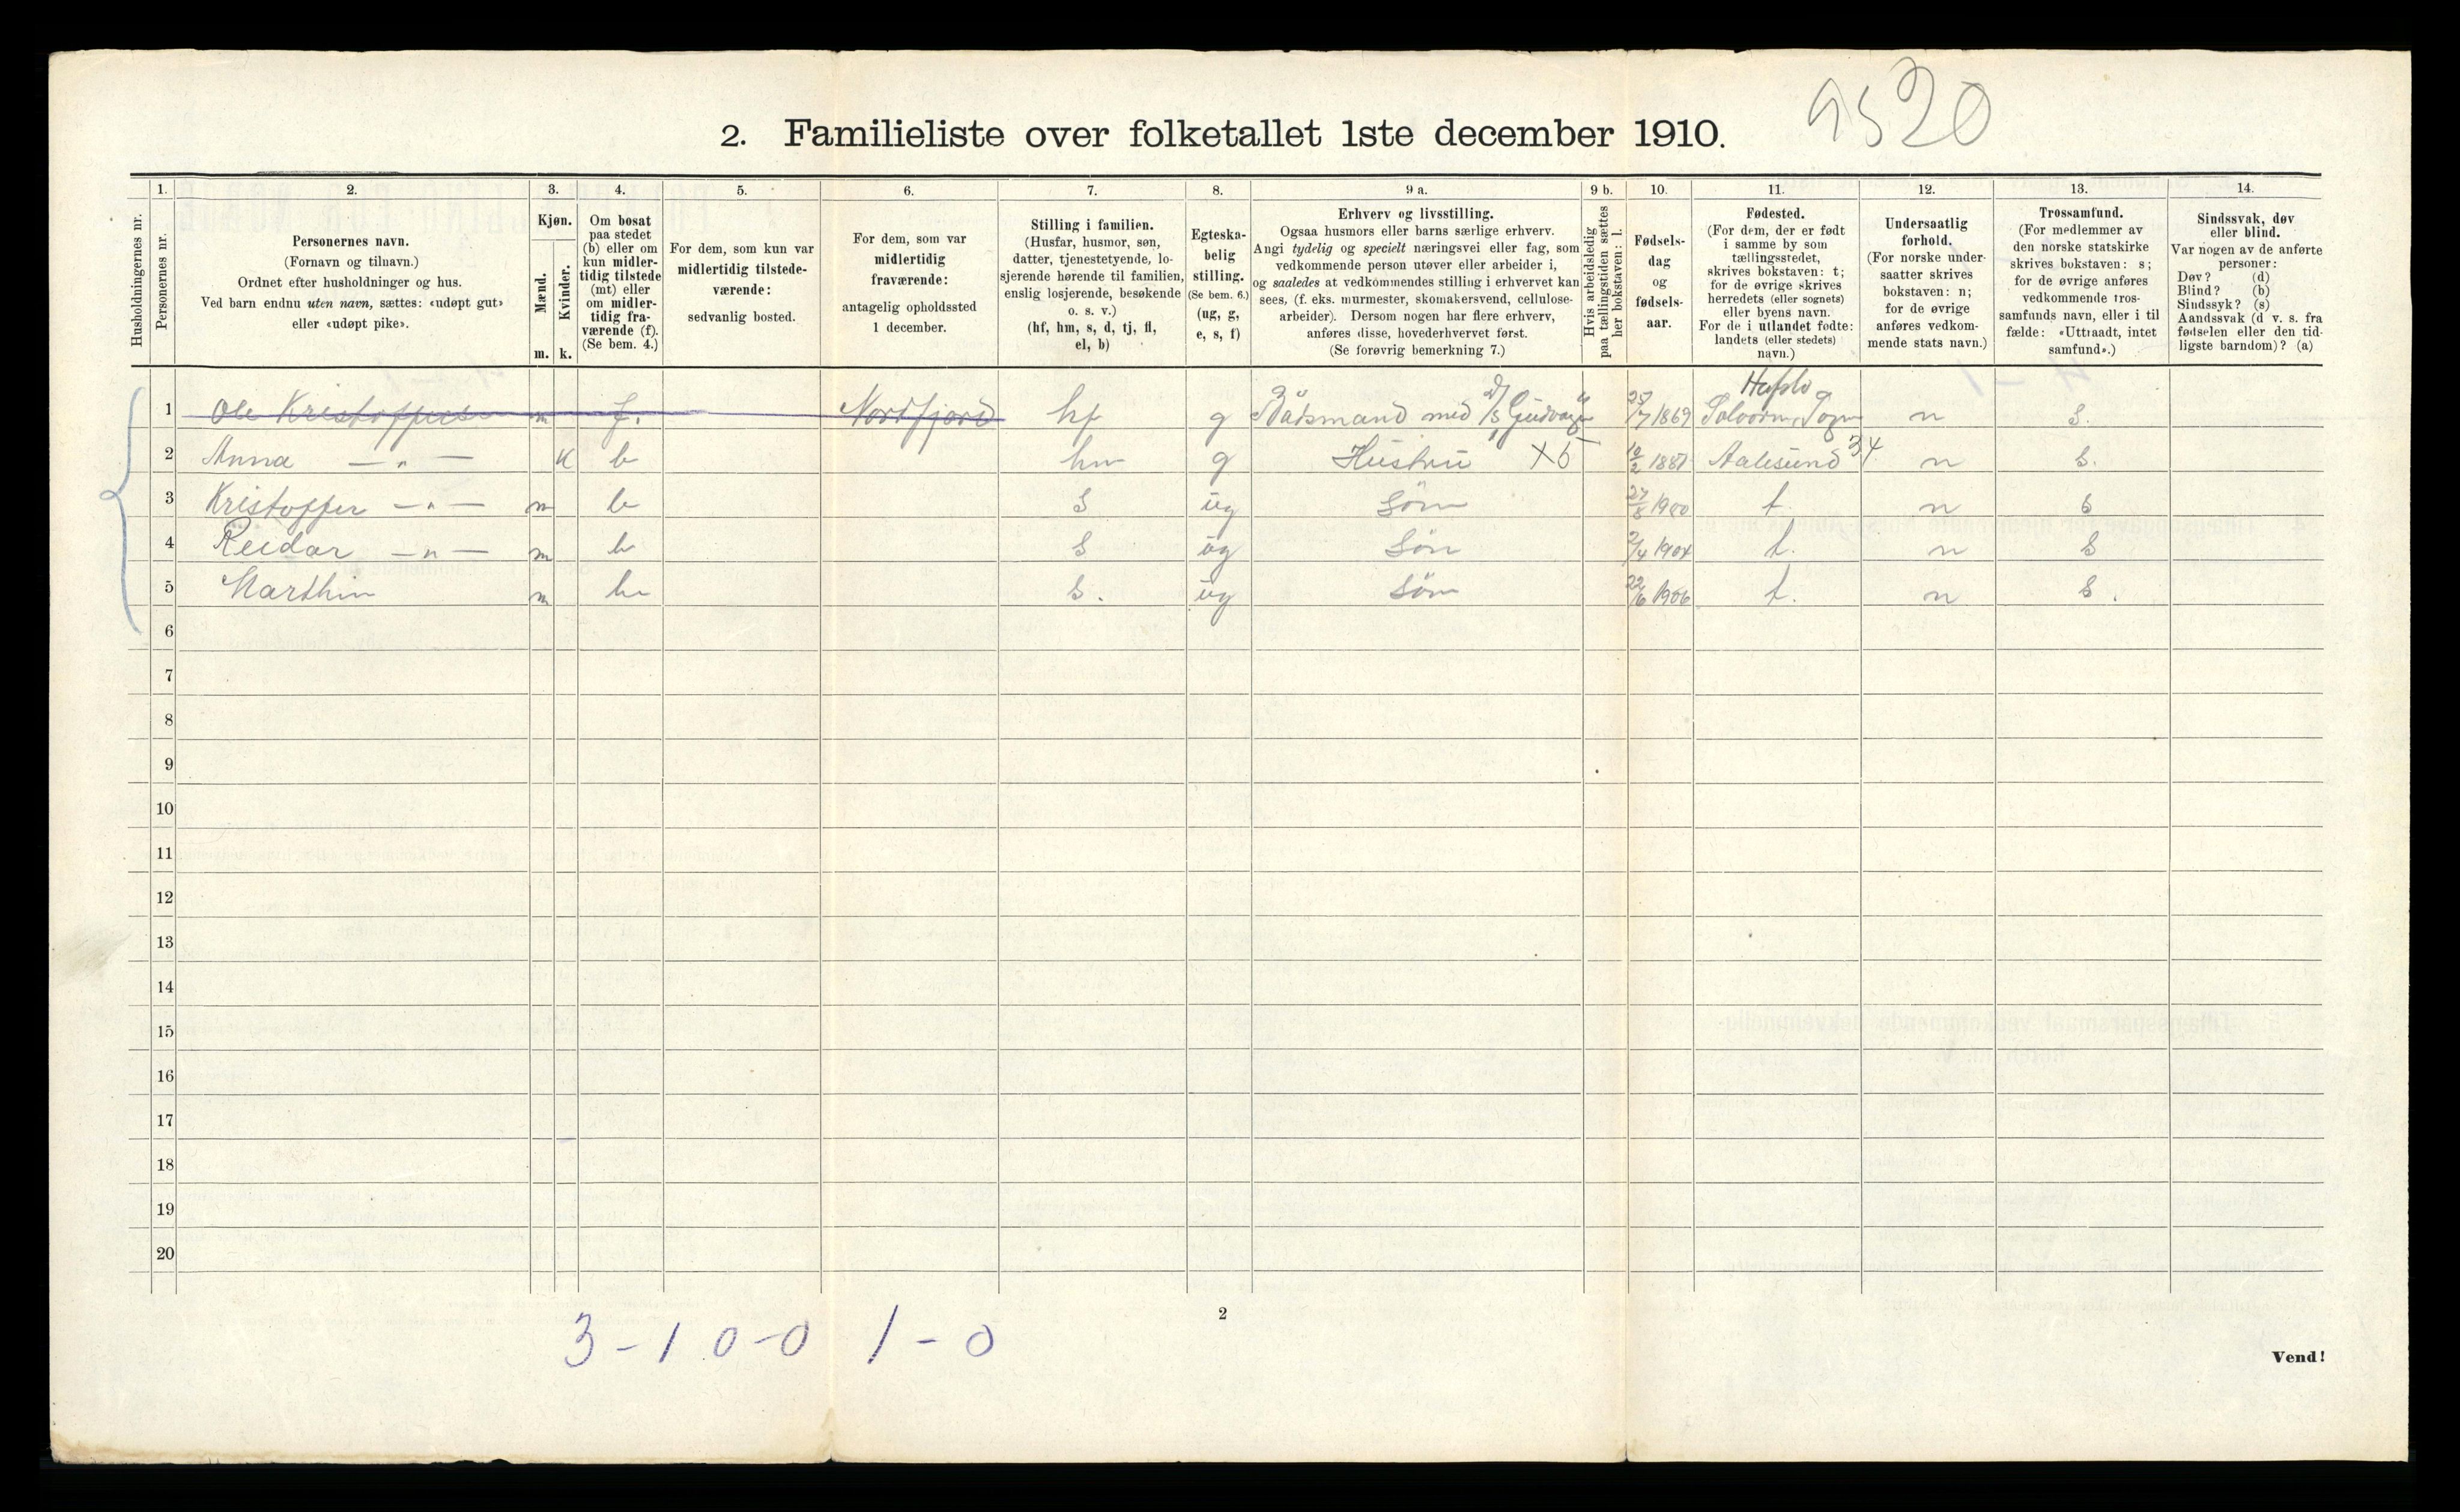 9520
2. Familieliste over folketallet 1ste december 1910.
1. 2. 3. 4. 5. 6. 7. 8. 9 a. 9 b. 10. 11. 12. 13. 14.
Husholdningernes nr.
Personernes nr.
Personernes navn.
(Fornavn og tilnavn.)
Ordnet efter husholdninger og hus.
Ved barn endnu uten navn, sættes: «udøpt gut»
eller «udøpt pike».
Kjøn.
Mænd.
Kvinder.
m. k.
Om bosat
paa stedet
(b) eller om
kun midler-
tidig tilstede
(mt) eller
om midler-
tidig fra-
værende (f).
(Se bem. 4.)
For dem, som kun var
midlertidig tilstede-
værende:
sedvanlig bosted.
For dem, som var
midlertidig
fraværende:
antagelig opholdssted
1 december.
Stilling i familien.
(Husfar, husmor, søn,
datter, tjenestetyende, lo-
sjerende hørende til familien,
enslig losjerende, besøkende
o. s. v.)
(hf, hm, s, d, tj, fl,
el, b)
Egteska-
belig
stilling.
(Se bem. 6.)
(ug, g,
e, s, f)
Erhverv og livsstilling.
Ogsaa husmors eller barns særlige erhverv.
Angi tydelig og specielt næringsvei eller fag, som
vedkommende person utøver eller arbeider i,
og saaledes at vedkommendes stilling i erhvervet kan
sees, (f. eks. murmester, skomakersvend, cellulose-
arbeider). Dersom nogen har flere erhverv,
anføres disse, hovederhvervet først.
(Se forøvrig bemerkning 7.)
Hvis arbeidsledig
paa tællingstiden sættes
her bokstaven: l.
Fødsels-
dag
og
fødsels-
aar.
Fødested.
(For dem, der er født
i samme by som
tællingsstedet,
skrives bokstaven: t;
for de øvrige skrives
herredets (eller sognets)
eller byens navn.
For de i utlandet fødte:
landets (eller stedets)
navn.)
Undersaatlig
forhold.
(For norske under-
saatter skrives
bokstaven: n;
for de øvrige
anføres vedkom-
mende stats navn.)
Trossamfund.
(For medlemmer av
den norske statskirke
skrives bokstaven: s;
for de øvrige anføres
vedkommende tros-
samfunds navn, eller i til
fælde: «Uttraadt, intet
samfund».)
Sindssvak, døv
eller blind.
Var nogen av de anførte
personer:
Døv? (d)
Blind? (b)
Sindssyk? (s)
Aandssvak (d v. s. fra
fødselen eller den tid-
ligste barndom)? (a)
Hafslo
1 Ole Kristoffersen m f. Nordfjord hf g Baadsmand med D/S "Gudvangen" /7 1869 Solvorn Sogn n s.
2 Anna —"— K b hm g Hustru X5 10/2 1880 Aalesund 34 n s.
3 Kristoffer —"— m b s ug Søn 27/8 1900 t. n s
4 Reidar —"— m b s ug Søn 2/4 1904 t. n s
5 Marthin m b s. ug Søn 22/6 1906 t. n s.
6
7
8
9
10
11
12
13
14
15
16
17
18
19
20
2
3 - 1 0 - 0 1 - 0
Vend!